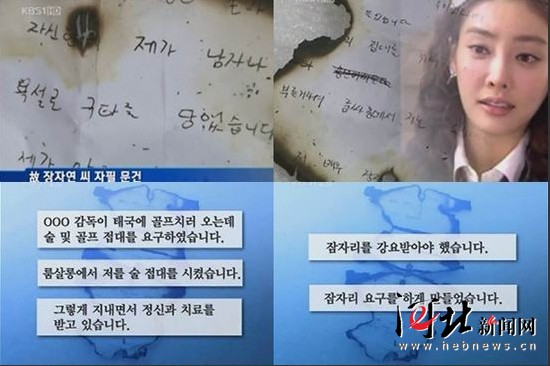 KBS1 HD
자신
제가 남자나
욕설로 구타를
당했습니다
제가
故 장자연 씨 자필 문건
접대를
배우
OOO 감독이 태국에 골프치러 오는데
술 및 골프 접대를 요구하였습니다.
룸살롱에서 저를 술 접대를 시켰습니다.
그렇게 지내면서 정신과 치료를
받고 있습니다.
잠자리를 강요받아야 했습니다.
잠자리 요구를 하게 만들었습니다.
河北新闻网
www.hebnews.cn